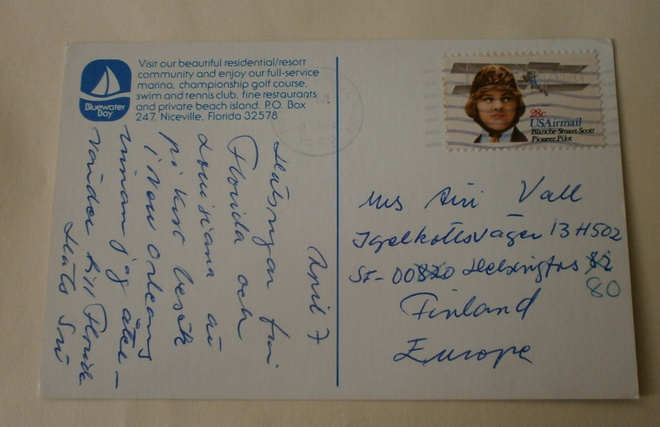 Bluewater
Bay
Visit our beautiful residential/resort
community and enjoy our full-service
marina, championship golf course,
swim and tennis club, fine restaurants
and private beach island. P.O. Box
247, Niceville, Florida 32578
April 7
Hälsningar från
Florida och
Louisiana
på kort besök
i New Orleans
innan jag åter-
vänder till Florida
28c
USAirmail
Blanche Stuart Scott
Pioneer Pilot
Mrs Siri Vall
Igelkottsvägen 13 H502
SF-00820 Helsingfors 82
80
Finland
Europe